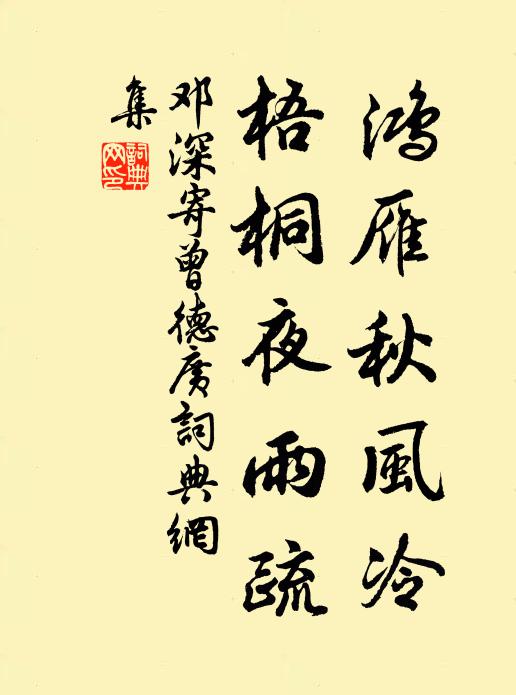 鸿雁秋風冷
梧桐夜雨疏
邓深寄曾德广詞典網
集
詞典
网印